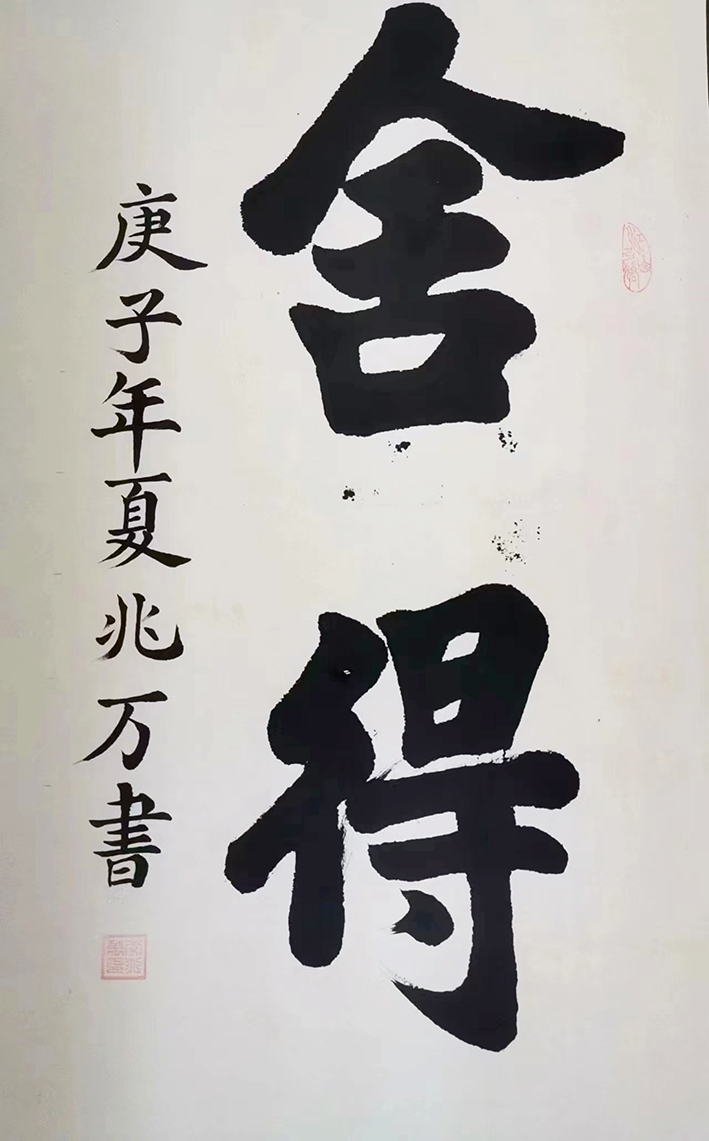 舍得
庚子年夏兆万書